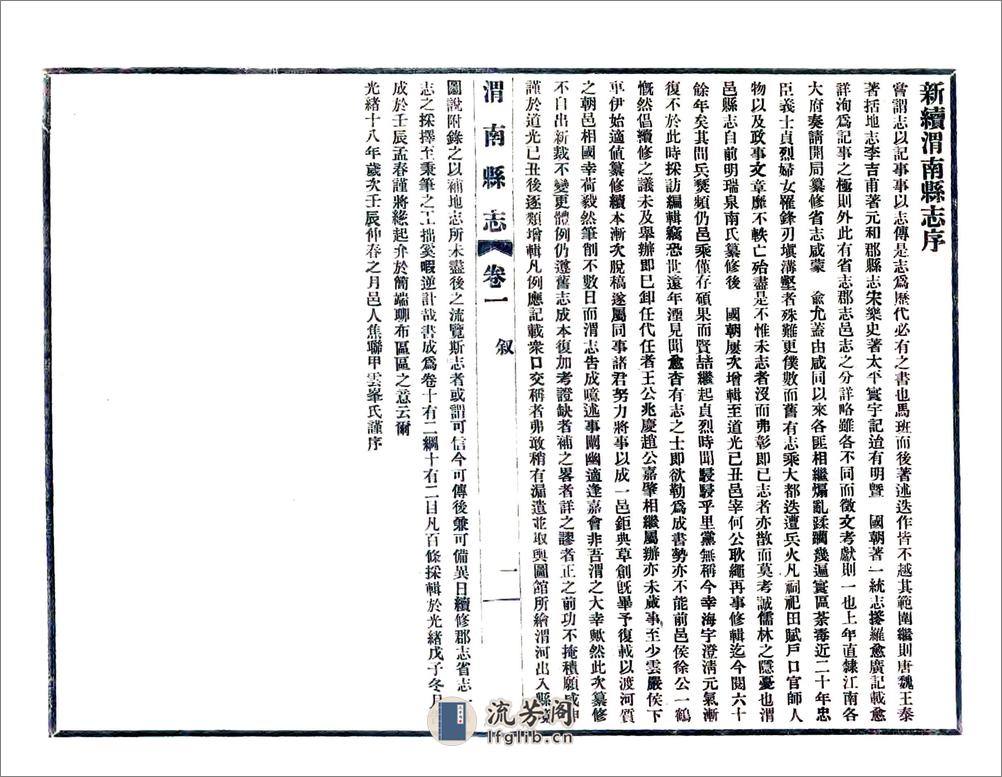 新續渭南縣志序
嘗謂志以記事事以志傳是志爲歷代必有之書也馬班而後著述迭作皆不越其範圍繼則唐魏王泰
著括地志李吉甫著元和郡縣志宋樂史著太平寰宇記迨有明暨 國朝著一統志搽羅愈廣記載愈
詳洵爲記事之極則外此有省志郡志邑志之分詳略雖各不同而徵文考獻則一也上年直隸江南各
大府奏請開局纂修省志咸蒙 俞允蓋由咸同以來各匪相繼煽亂蹂躪幾遍寰區荼毒近二十年忠
臣義士貞烈婦女罹鋒刃塡溝壑者殊難更僕數而舊有志乘大都迭遭兵火凡祠祀田賦戶口官師人
物以及政事文章靡不軼亡殆盡是不惟未志者沒而弗彰即已志者亦散而莫考誠儒林之隱憂也渭
邑縣志自前明瑞泉南氏纂修後 國朝屢次增輯至道光已丑邑宰何公耿繩再事修輯迄今閱六十
餘年矣其間兵燹頻仍邑乘僅存碩果而賢喆繼起貞烈時聞駸駸乎里黨無稱今幸海宇澄淸元氣漸
復不於此時採訪編輯竊恐世遠年湮見聞愈杳有志之士即欲勒爲成書勢亦不能前邑侯徐公一鶴
慨然倡續修之議未及舉辦即已卸任代任者王公兆慶趙公嘉肇相繼屬辦亦未蕆事至少雲嚴侯下
車伊始適値纂修續本漸次脫稿遂屬同事諸君努力將事以成一邑鉅典草創旣畢予復載以渡河質
之朝邑相國幸荷毅然筆削不數日而渭志告成噫述事闡幽適逢嘉會非吾渭之大幸歟然此次纂修
不自出新裁不變更體例仍遵舊志成本復加考證缺者補之畧者詳之謬者正之前功不掩積願咸伸
謹於道光已丑後逐類增輯凡例應記載衆口交稱者弗敢稍有漏遺並取輿圖館所繪渭河出入縣境
渭南縣志 卷一 叙 一
圖說附錄之以補地志所未盡後之流覽斯志者或謂可信今可傳後兼可備異日續修郡志省志一
志之採擇至秉筆之工拙奚暇逆計哉書成爲卷十有二綱十有二目凡百條採輯於光緒戊子冬月
成於壬辰孟春謹將緣起弁於簡端聊布區區之意云爾
光緒十八年歲次壬辰仲春之月邑人焦聯甲雲峯氏謹序
流芳阁
lfglib.cn